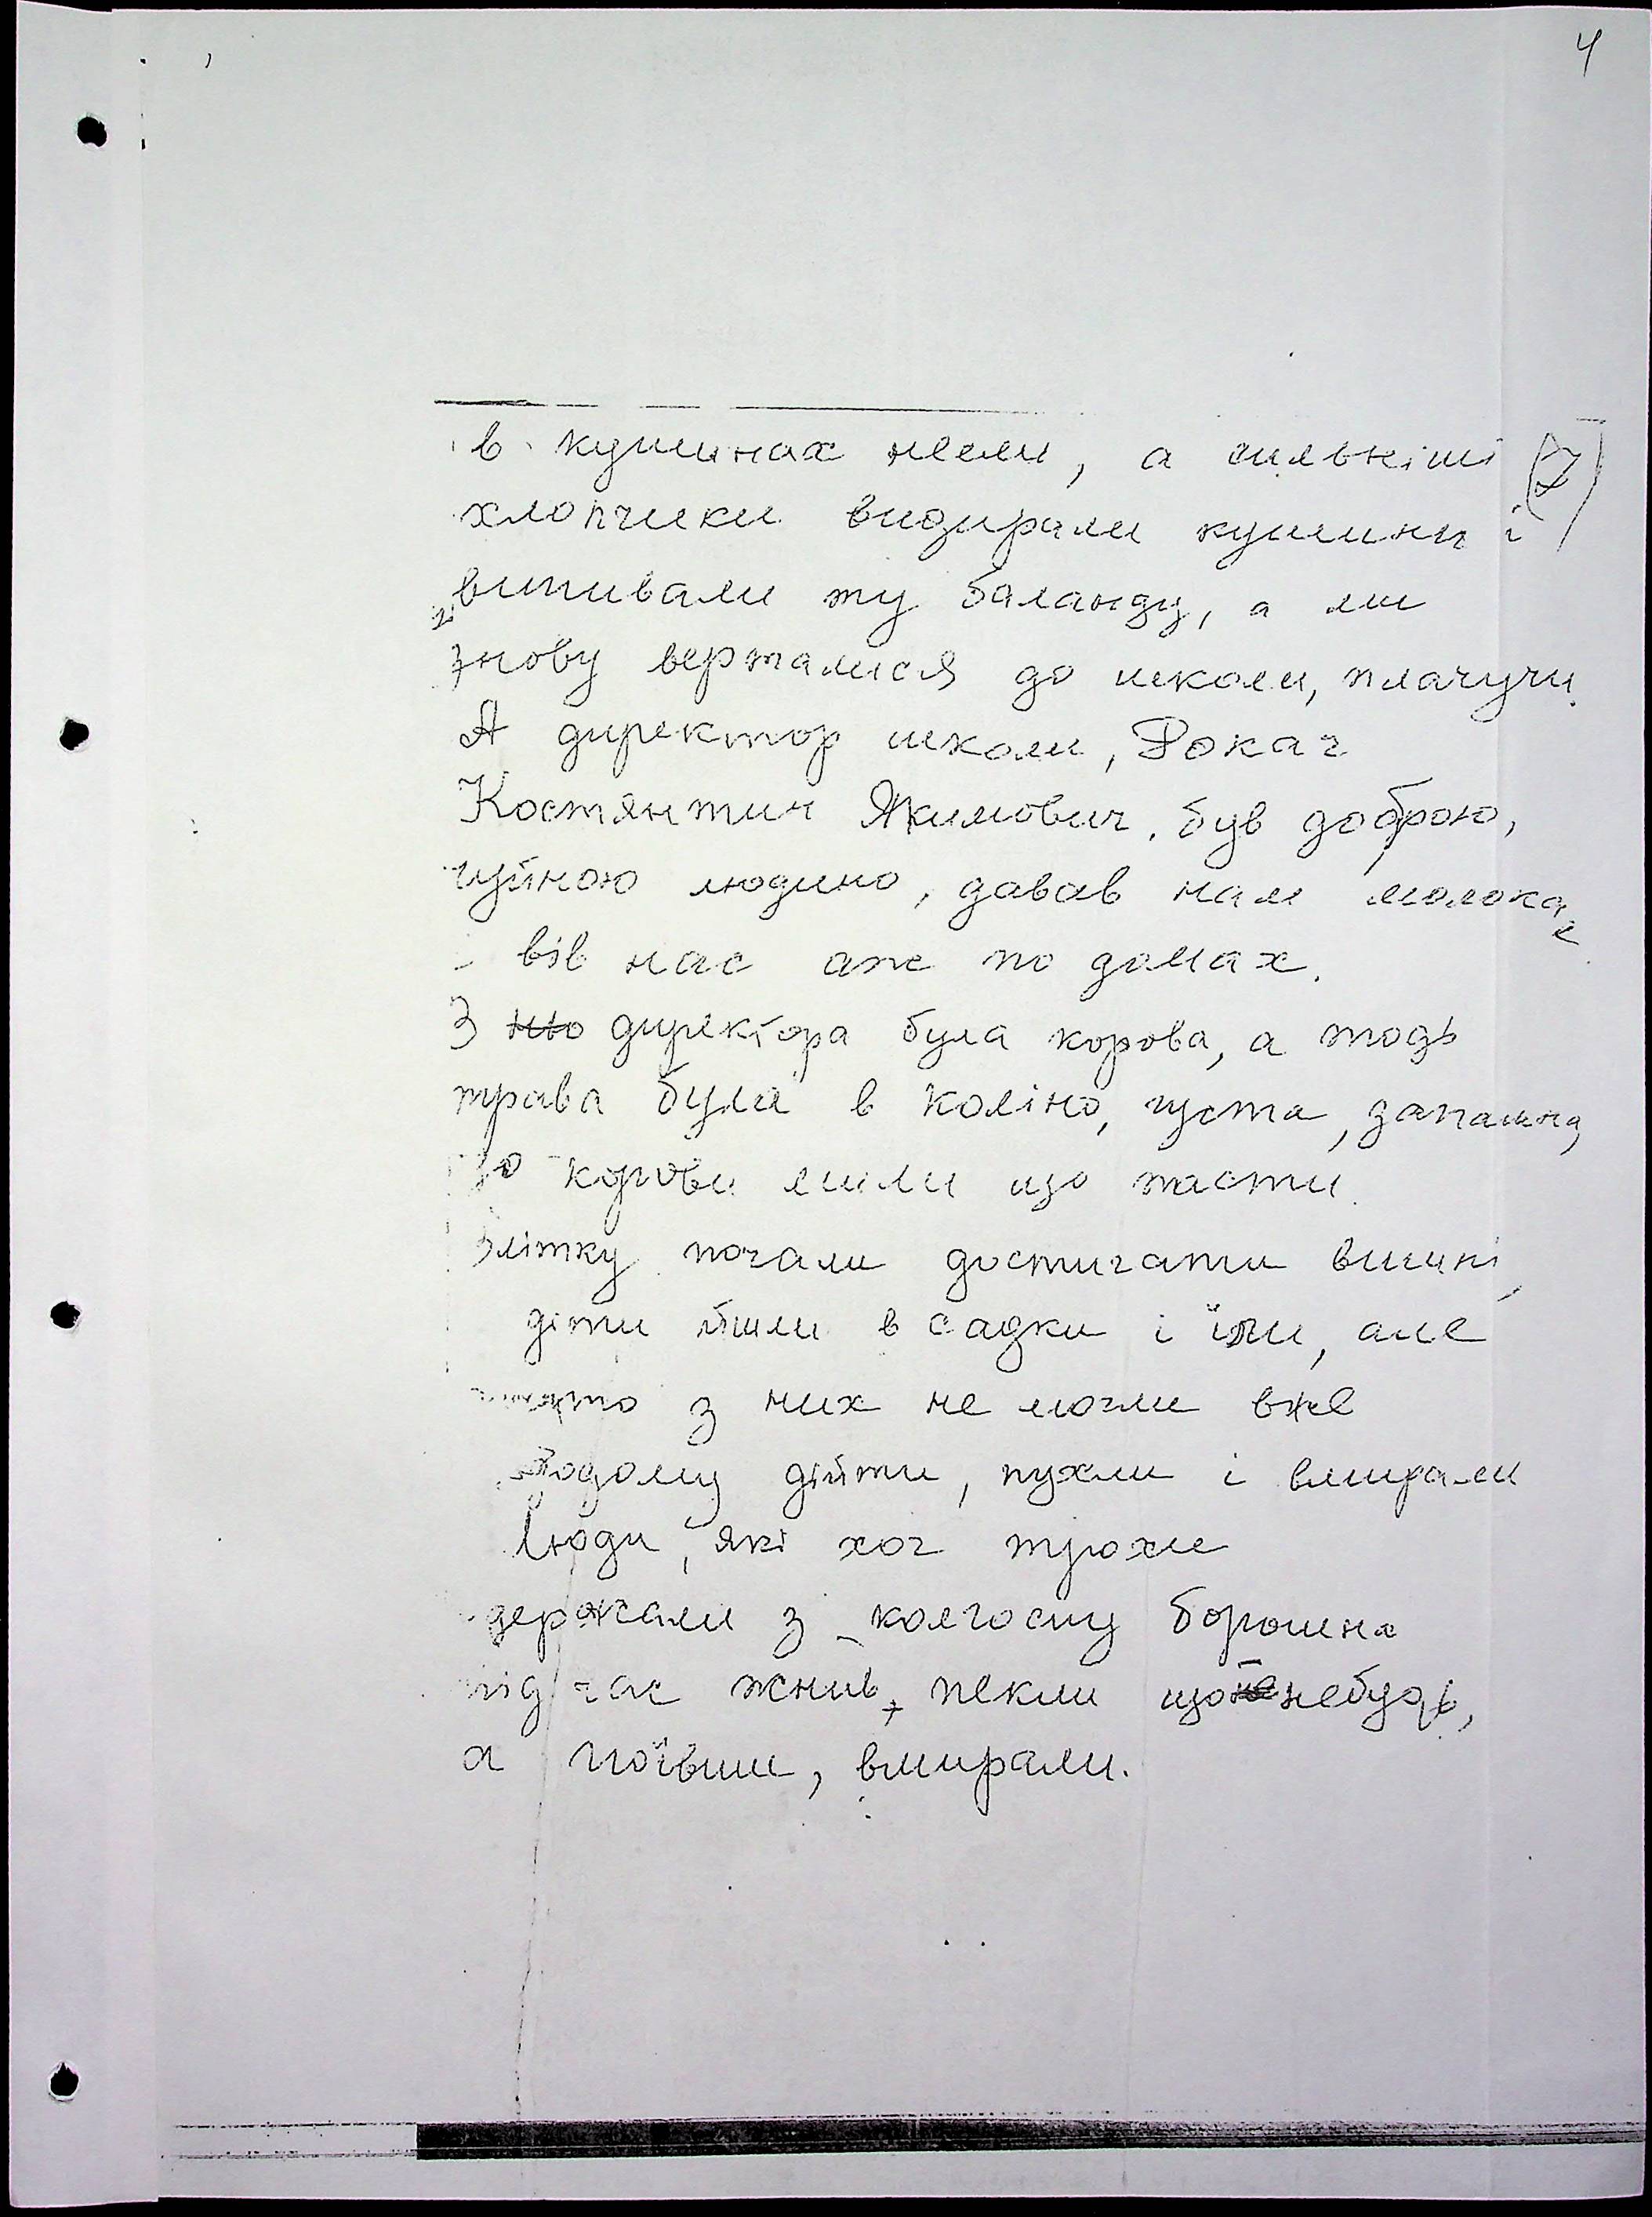 4
(7)
в кушинах несли, а сильніші
хлопчики видирали кушини і
випивали ту баланду, а ми
знову верталися до школи, плачучи.
А директор школи, Рокач
Костянтин Якимович, був доброю,
чуйною людино, давав нам молока
і вів нас аж по домах.
З директора була корова, а тодь
трава була в коліно, густа, запашна,
то корови мали що пасти.
Влітку почали достигати вишні,
діти йшли в садки і їли, але
з них не могли вже
додому дійти, пухли і вмирали
Люди, які хоч трохи
держали з колгоспу борошна
під час жнив, пекли що небудь,
а поївши, вмирали.